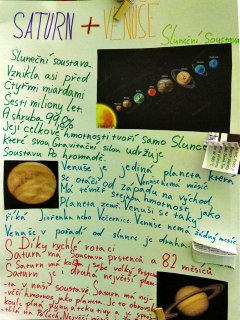 SATURN + VENUŠE
Sluneční Soustava
Sluneční soustava
Vznikla asi před
čtyřmi miliardami
Šesti miliony let.
A zhruba 99,8%
Její celkové hmotnosti tvoří samo Slunce
které svou gravitační silou udržuje
Soustavu Po hromadě.
Venuše je jediná planeta která
se otáčí od západu na východ
Venuše nemá měsíc
Má téměř stejnou hmotnost jako
Planeta země. Venuši se taky
říká Jitřenka nebo Večernice. Venuše nemá žádný měsíc.
Venuše v pořadí od slunce je druhá
S Díky rychlé rotaci
Saturn má Soustavu prstenců a 82 měsíců
Saturn má kolem Sebe velký Prstenec
Saturn je druhá největší planeta
v naší soustavě Saturn má
větší hmotnost jako planeta. Je to obrovská
koule plná plynu a